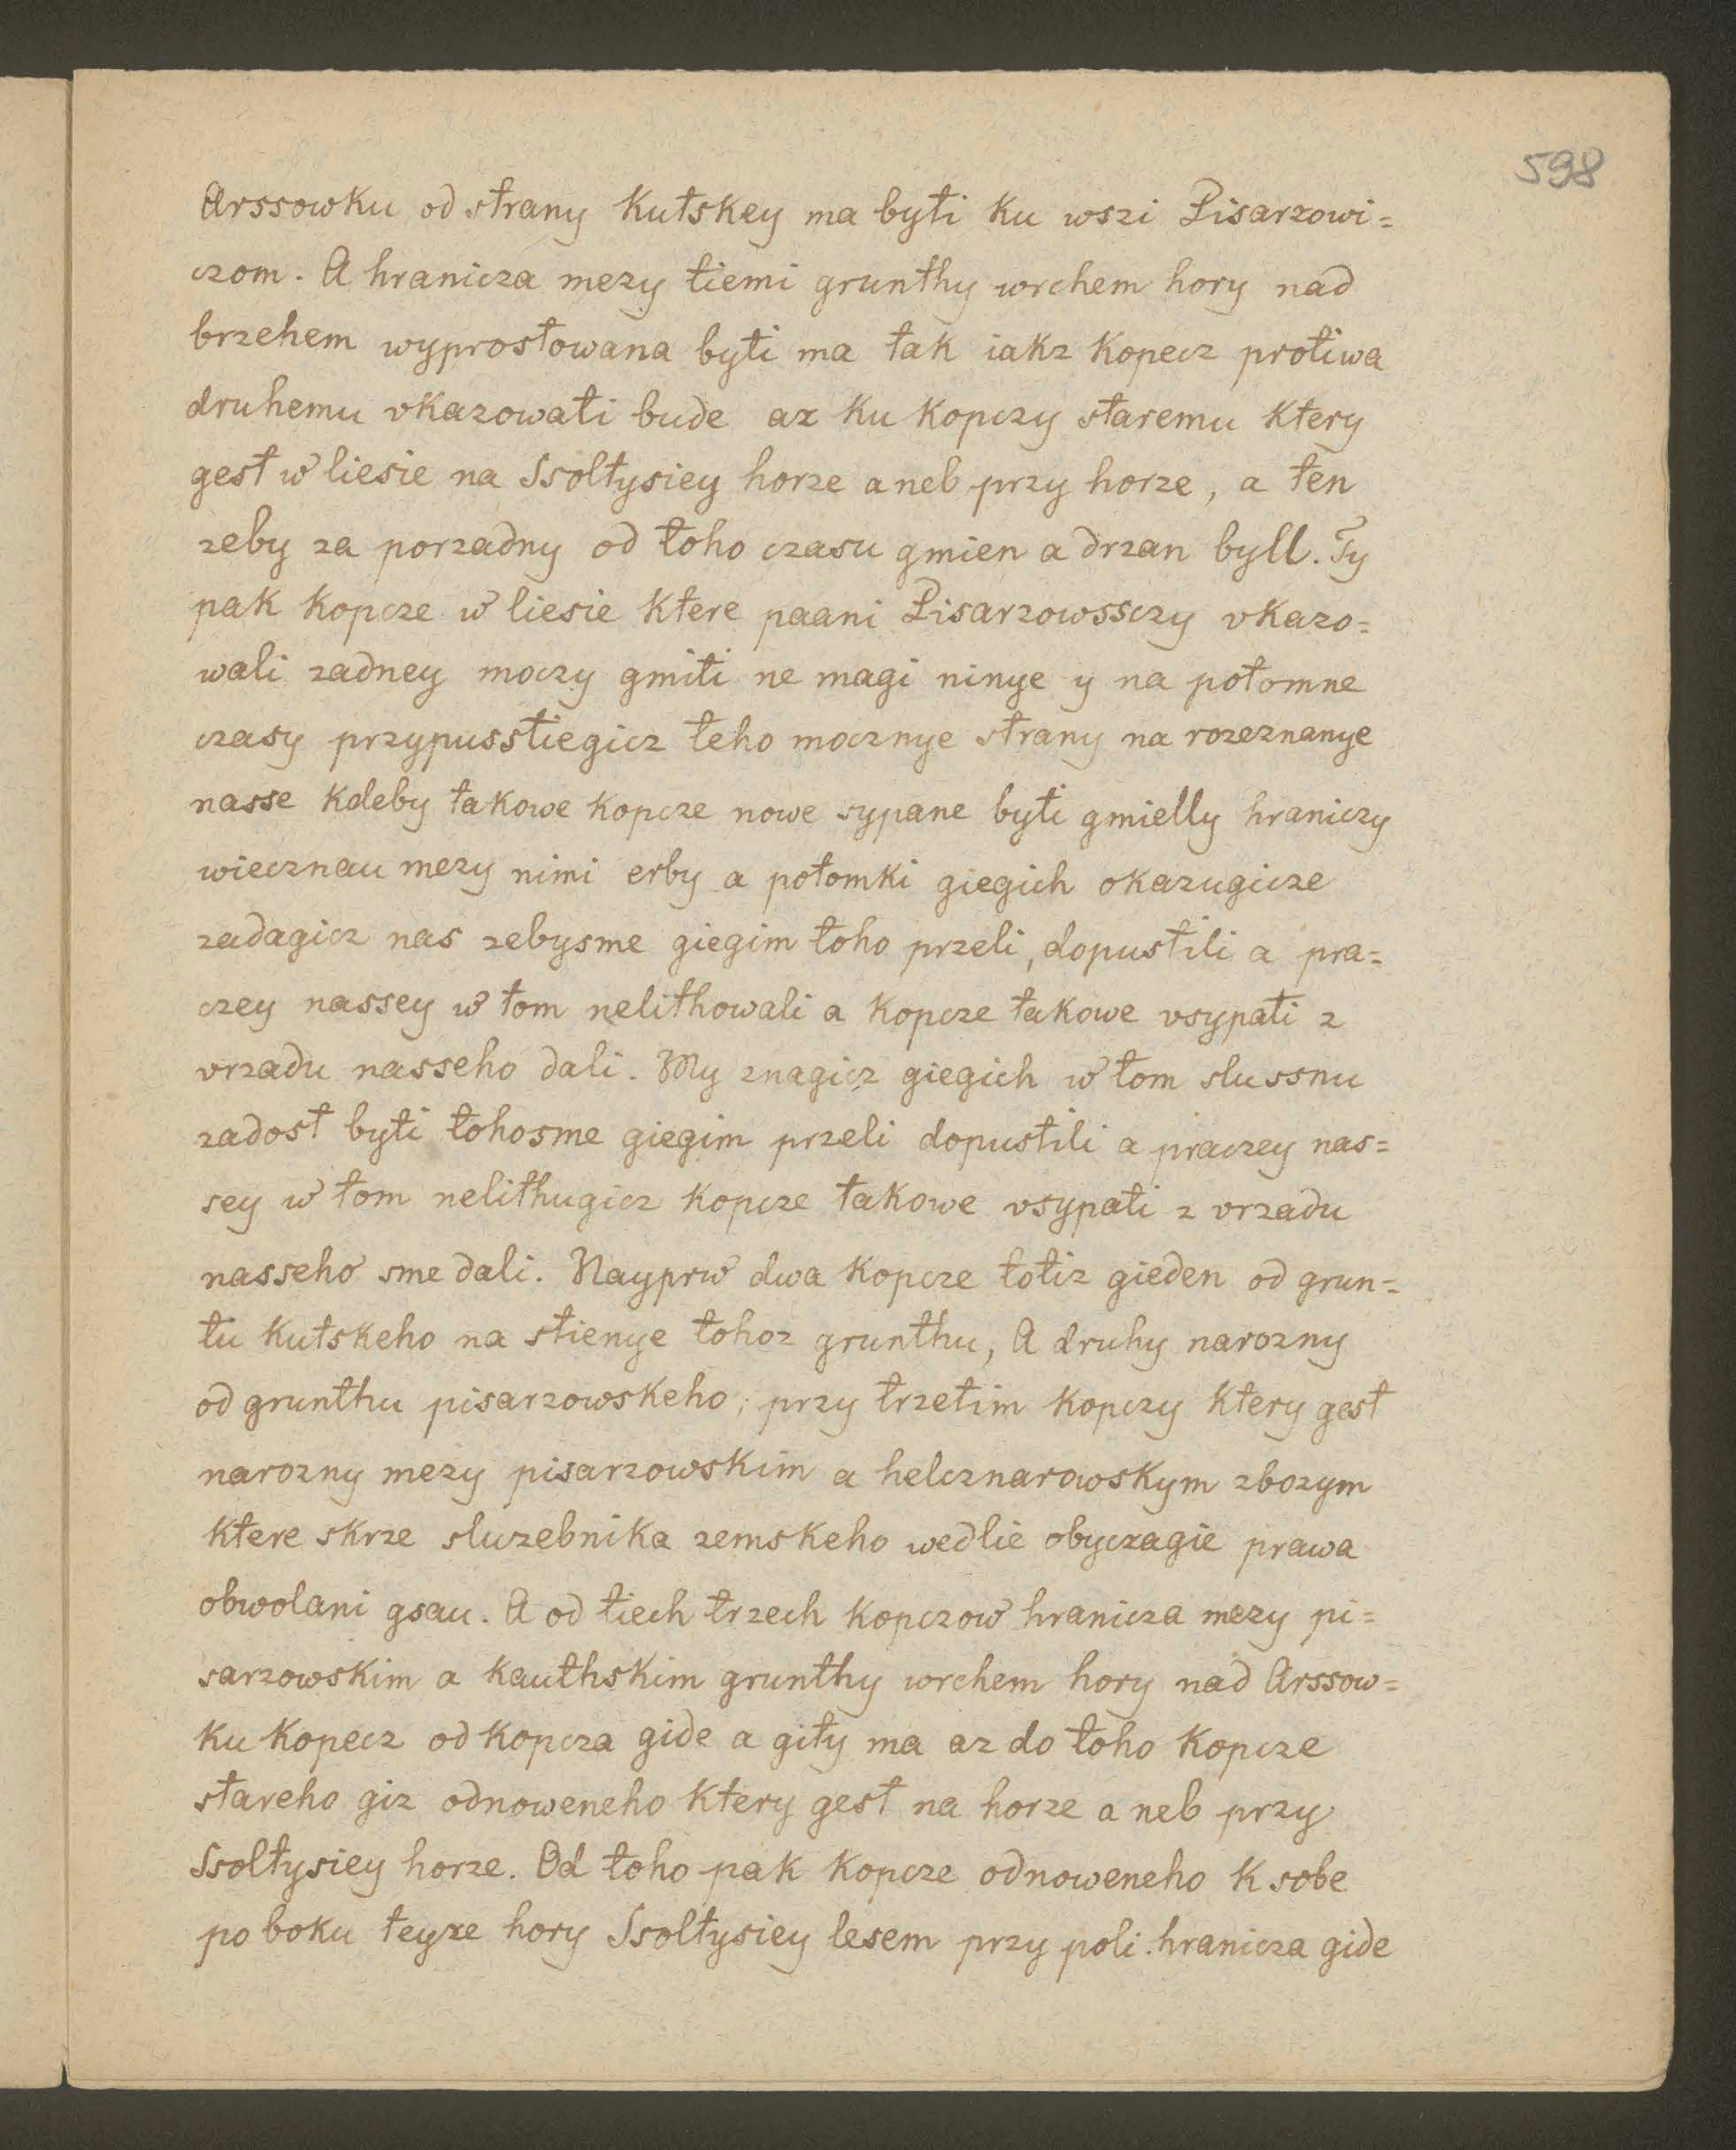 598
Arssowku od strany Kutskey ma byti ku wszi Pisarzowi=
czom. A hranicza mezy tiemi grunthy wrchem hory nad
brzehem wyprostowana byti ma tak iakz Kopecz protiwa
druhemu vkazowati bude az ku kopczy staremu ktery
gest w liesie na Ssoltysiey horze aneb przy horze, a ten
zeby za porzadny od toho czasu gmien a drzan byll. Ty
pak kopcze w liesie ktere paani Pisarzowssczy vkazo=
wali zadney moczy gmiti ne magi ninye y na potomne
czasy przypusstiegicz teho mocznye strany na rozeznanye
nasse kdeby takowe kopcze nowe sypane byti gmielly hraniczy
wiecznau mezy nimi erby a potomki giegich okazugicze
zadagicz nas zebysme giegim toho przeli, dopustili a pra=
czey nassey w tom nelithowali a kopcze takowe vsypati z
vrzadu nasseho dali. My znagicz giegich w tom slussnu
zadost byti tohosme giegim przeli dopustili a praczey nas=
sey w tom nelithugicz kopcze takowe vsypati z vrzadu
nasseho sme dali. Nayprw dwa kopcze totiz gieden od grun=
tu kutskeho na stienye tohoz grunthu, A druhy narozny
od grunthu pisarzowskeho, przy trzetim kopczy ktery gest
narozny mezy pisarzowskim a helcznarowskym zbozym
ktere skrze sluzebnika zemskeho wedlie obyczagie prawa
obwolani gsau. A od tiech trzech kopczow hranicza mezy pi=
sarzowskim a kauthskim grunthy wrchem hory nad Arssow=
ku kopecz od kopcza gide a gity ma az do toho kopcze
stareho giz odnoweneho ktery gest na horze a neb przy
Ssoltysiey horze. Od toho pak kopcze odnoweneho k sobe
po boku teyze hory Ssoltysiey lesem przy poli hranicza gide